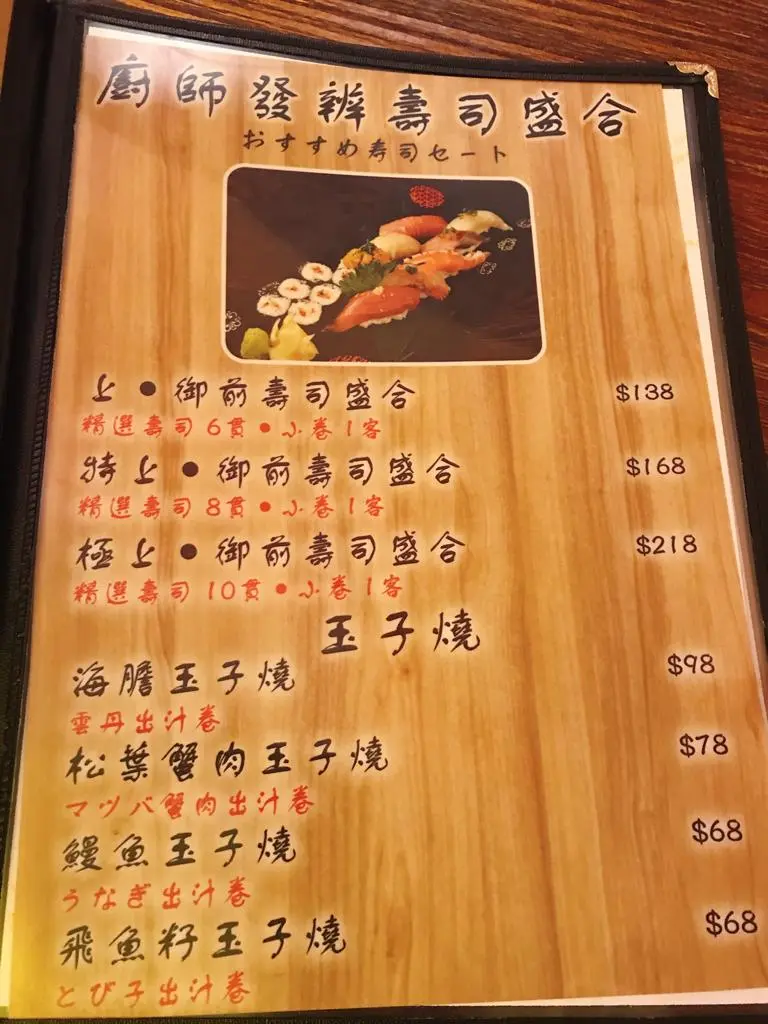 廚師發辨壽司盛合
おすすめ寿司セート
上●御前壽司盛合 $138
精選壽司6貫●小卷1客
特上●御前壽司盛合 $168
精選壽司8貫●小卷1客
極上●御前壽司盛合 $218
精選壽司10貫●小卷1客
玉子燒
海膽玉子燒 $98
雲丹出汁卷
松葉蟹肉玉子燒 $78
マツバ蟹肉出汁卷
鰻魚玉子燒 $68
うなぎ出汁卷
飛魚籽玉子燒 $68
とび子出汁卷